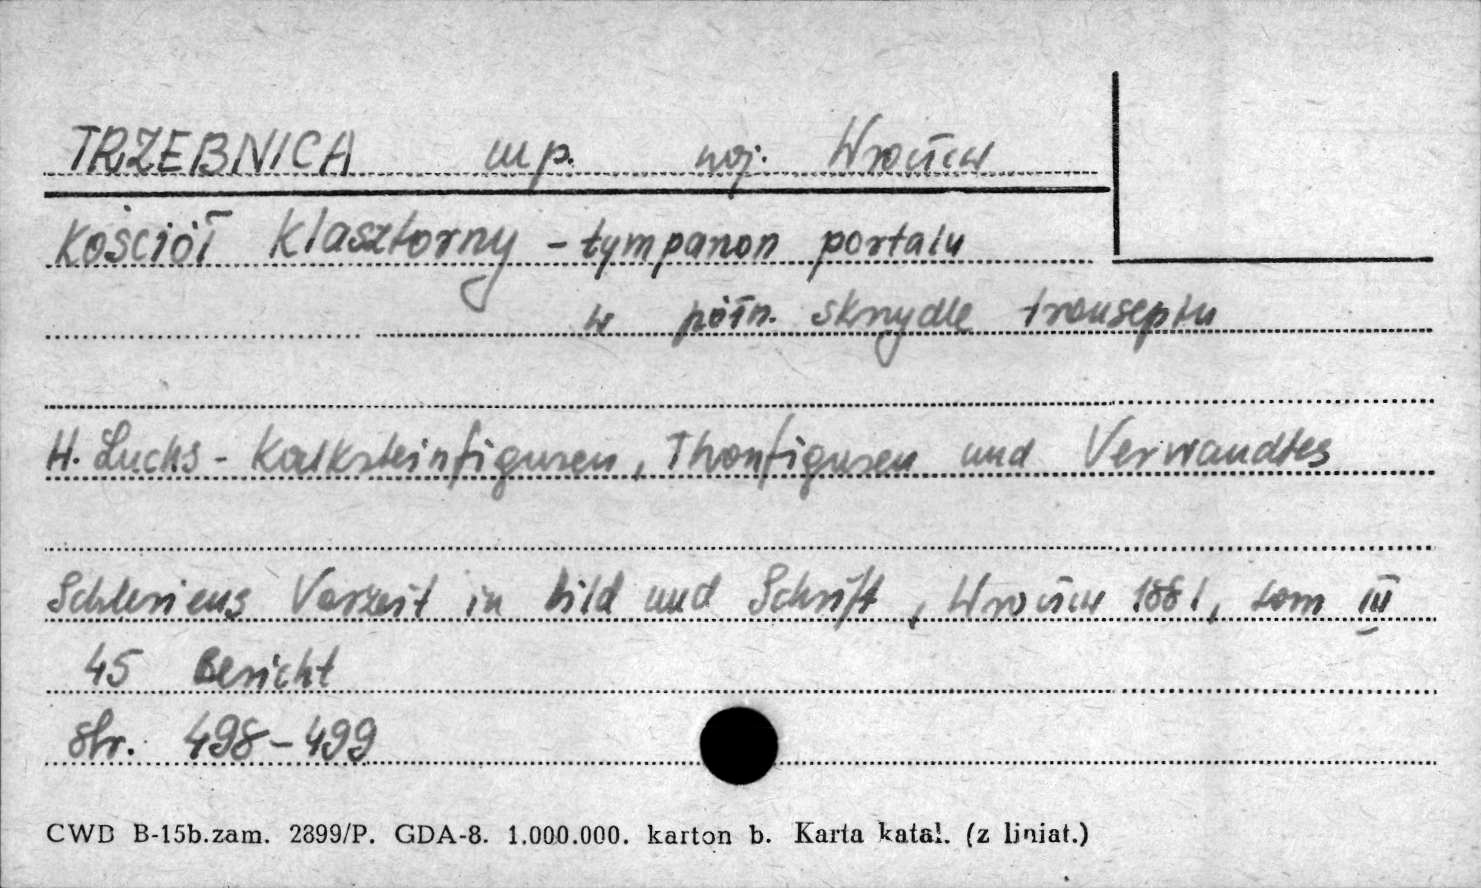 TRZEBNICA mp. woj. Wrocław
Kościół Klasztorny - tympanon portalu
w półn. skrzydle transeptu
H. Luchs - Kalksteinfiguren, Thonfiguren und Verwandtes
Schlesiens Vorzeit in bild und Schrift, Wrocław 1881, tom III
45 Bericht
str. 498-499
CWD B-15b.zam. 2899/P. GDA-8. 1.000.000. karton b. Karta katal. (z liniat.)